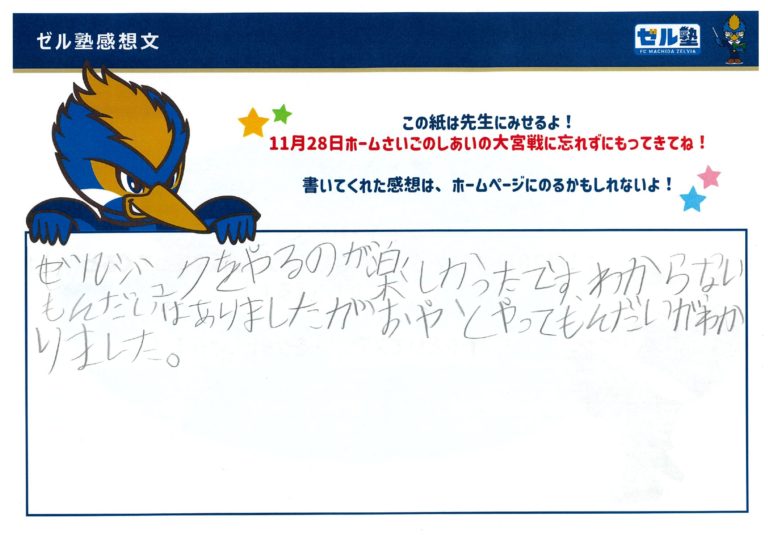 ゼル塾感想文
ゼル塾
FC MACHIDA ZELVIA
この紙は先生にみせるよ！
11月28日ホームさいごのしあいの大宮戦に忘れずにもってきてね！
書いてくれた感想は、ホームページにのるかもしれないよ！
ゼルジュクをやるのが楽しかったです、わからない
もんだいはありましたがおやとやってもんだいがわか
りました。